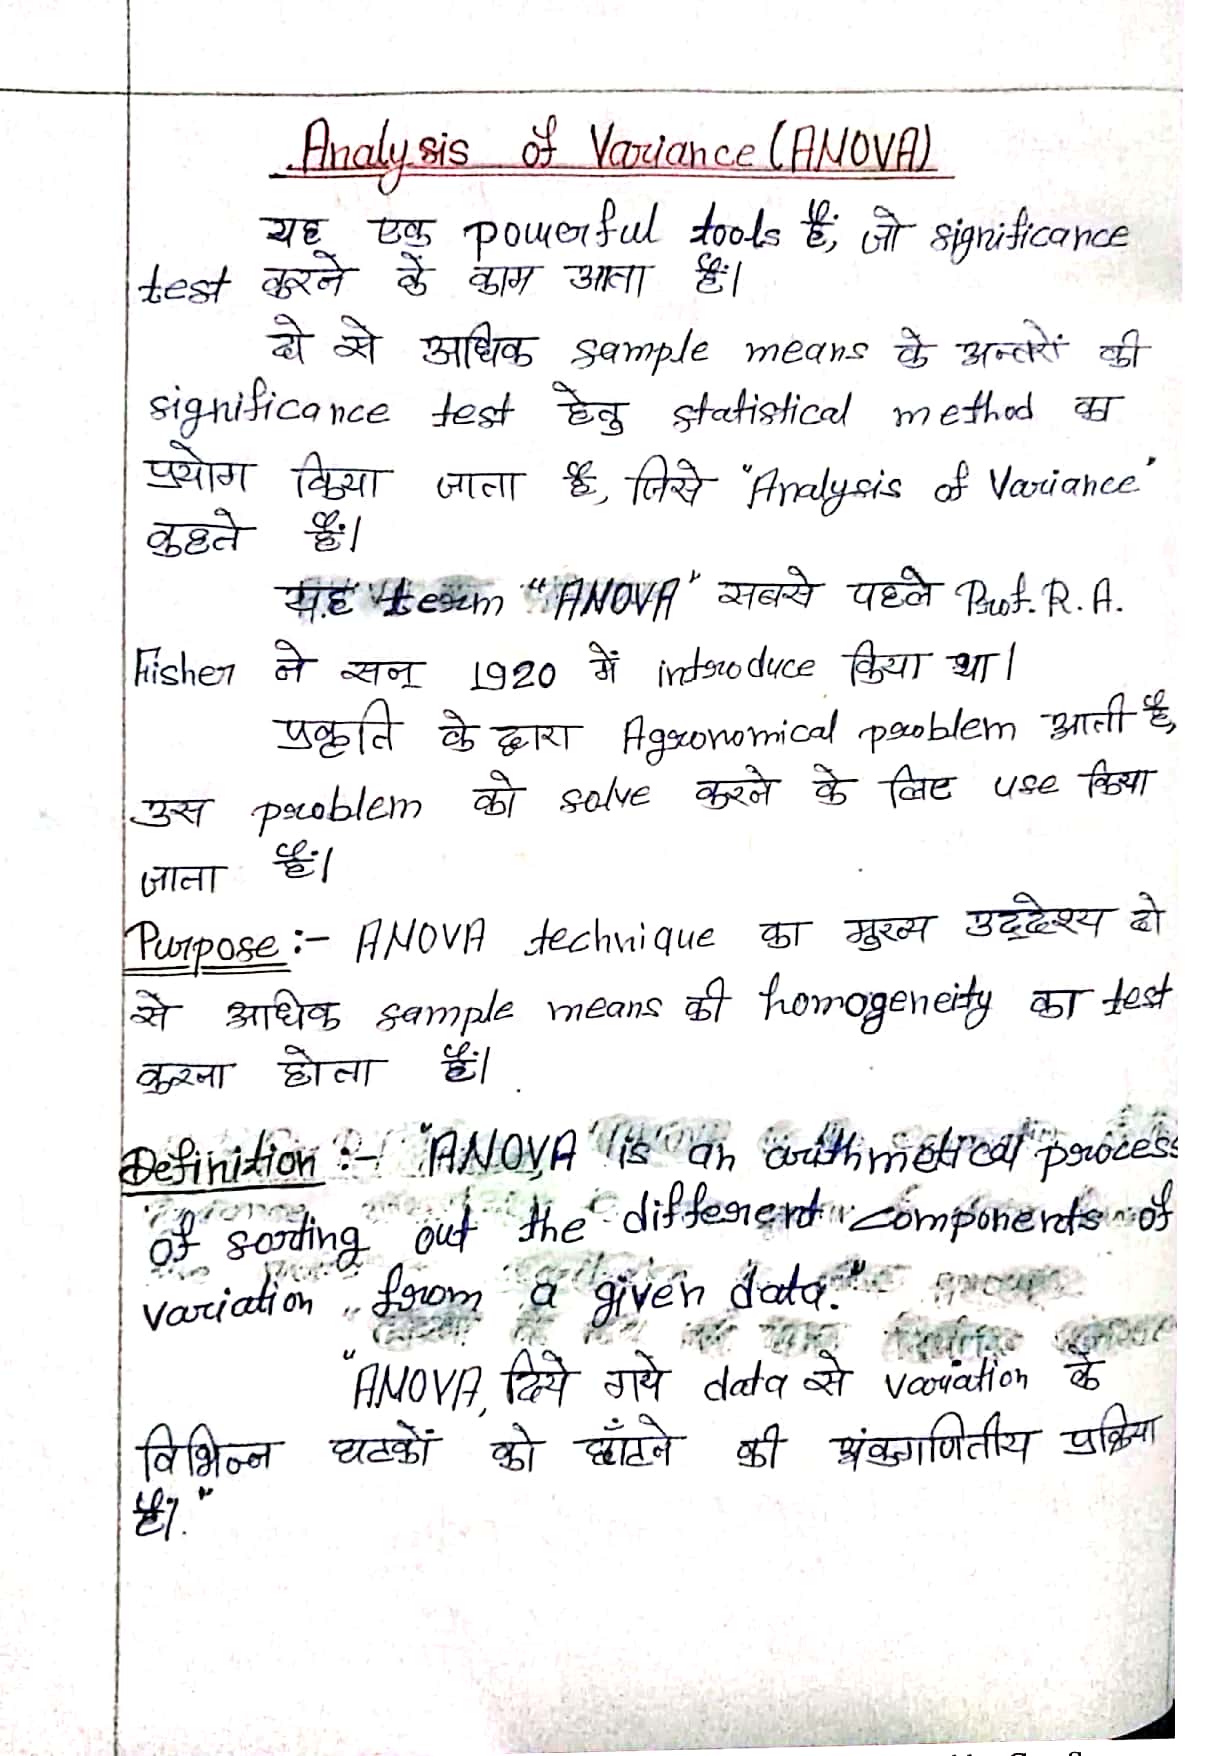 Analysis of Variance (ANOVA)
यह एक powerful tools हैं, जो significance
test करने के काम आता हैं।
दो से अधिक sample means के अन्तरों की
significance test हेतु statistical method का
प्रयोग किया जाता है, जिसे "Analysis of Variance"
कहते हैं।
यह term "ANOVA" सबसे पहले Prof. R. A.
Fisher ने सन् 1920 में introduce किया था।
प्रकृति के द्वारा Agronomical problem आती है,
उस problem को solve करने के लिए use किया
जाता हैं।
Purpose :- ANOVA technique का मुख्य उद्देश्य दो
से अधिक sample means की homogeneity का test
करना होता हैं।
Definition :- "ANOVA is an arithmetical process
of sorting out the different components of
variation from a given data."
"ANOVA, दिये गये data से variation के
विभिन्न घटकों को छाँटने की अंकगणितीय प्रक्रिया
है।"